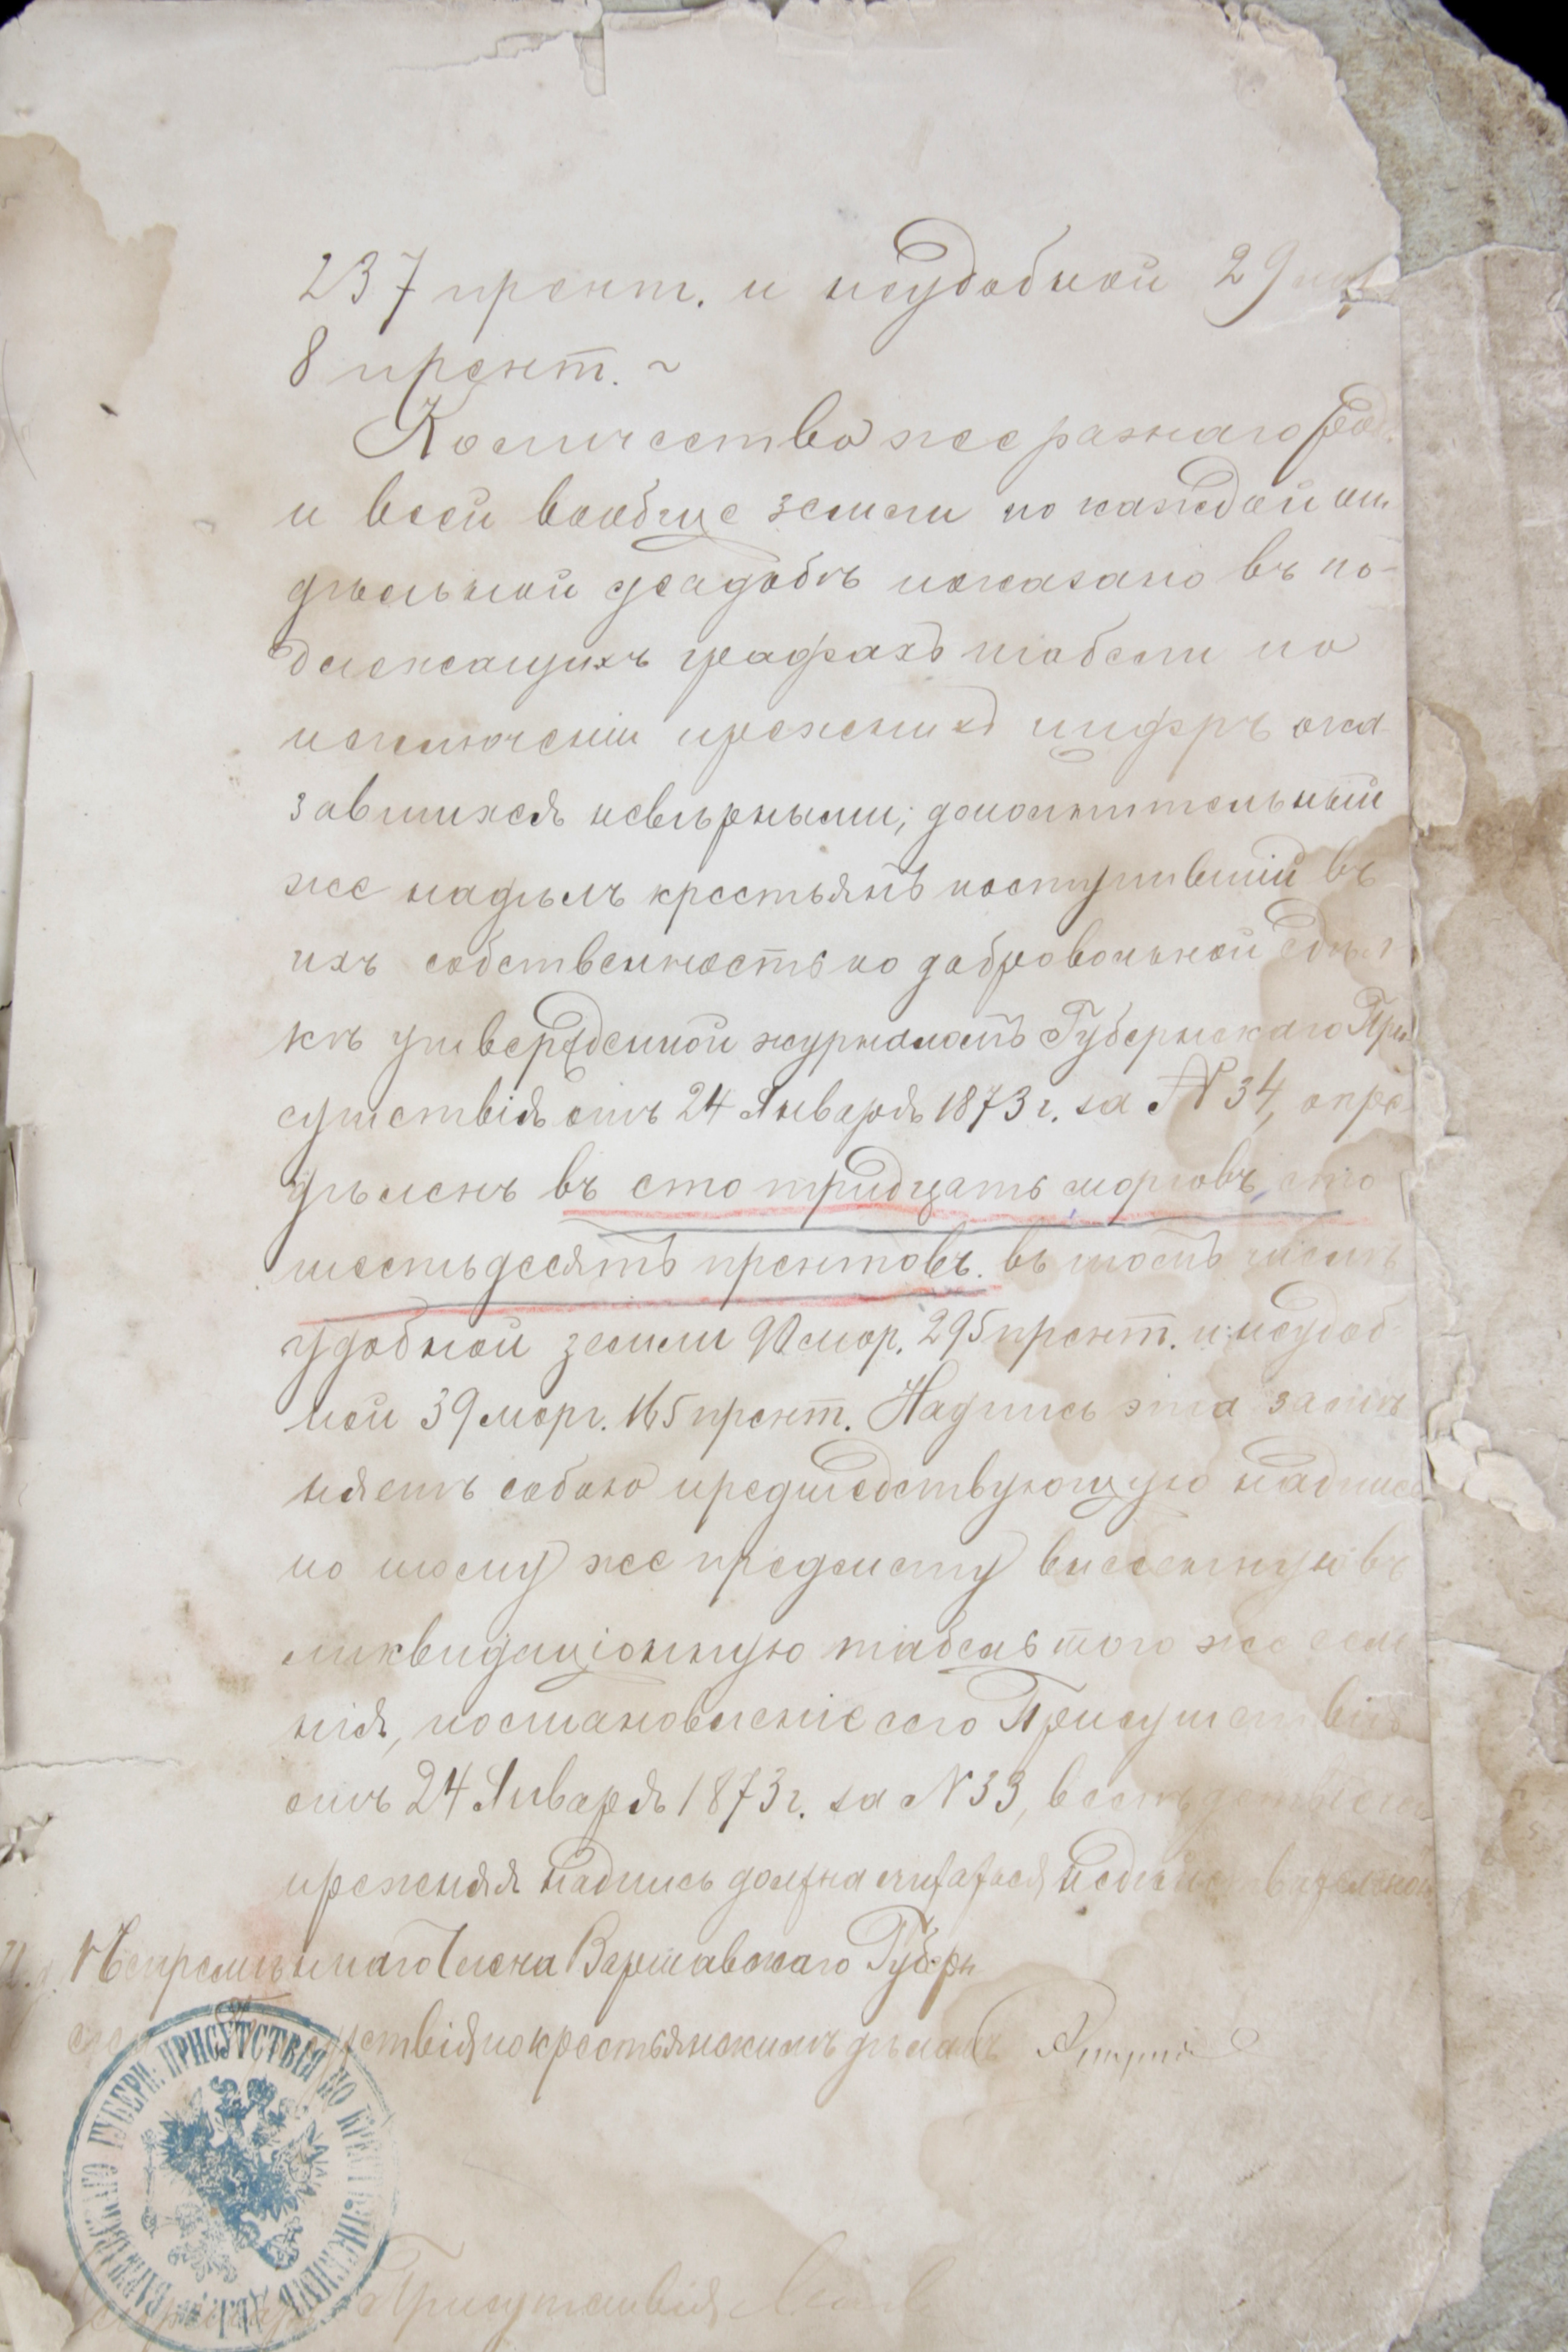 237 прент. и неудобной 29
8 прент. ~
Количество же разнаго рода
и всей вообще земли по каждой от
дѣльной усадьбѣ показано въ по-
длежащихъ графахъ табели по
исключеніи прежнихъ цифръ ока
завшихся невѣрными; дополнительный
же надѣлъ крестьянъ поступившій въ
ихъ собственность по добровольной сдѣл
кѣ утвержденной журналомъ Губернскаго При
сутствія отъ 24 Января 1873 г. за № 34, опре
дѣленъ въ сто тридцать морговъ, сто
шестьдесятъ прентовъ. въ томъ числѣ
удобной земли 90 мор. 295 прент. и неудоб
ной 39 морг. 165 прент. Надпись эта замѣ
няетъ собою предшедствующую надпись
по тому же предмету внесенную въ
ликвидаціонную табель того же селе
нія, постановленіе сего Присутствія
отъ 24 Января 1873 г. за № 33, вслѣдствіе чего
прежняя надпись должна считаться недѣйствительною
И. д. Непремѣннаго Члена Варшавскаго Губерн
скаго Присутствія по крестьянскимъ дѣламъ
ВАРШАВСКАГО ГУБЕРН. ПРИСУТСТВІЯ ПО КРЕСТЬЯНСКИМЪ ДѢЛ
Секретарь Присутствія